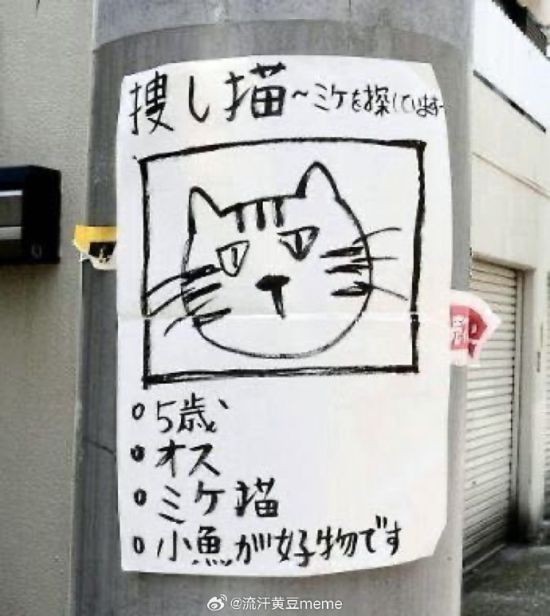 捜し猫～ミケを探しています～
・5歳
・オス
・ミケ猫
・小魚が好物です
@流汗黄豆meme